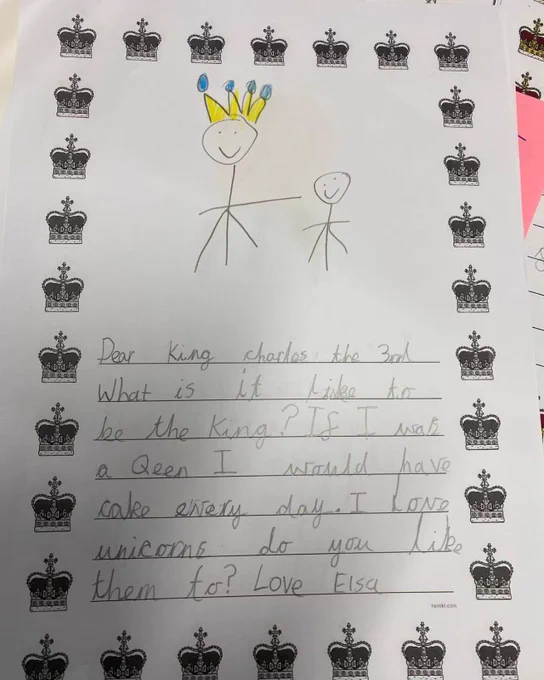 Dear King charles the 3rd
What is it like to
be the King? If I was
a Qeen I would have
cake every day. I Love
unicorns do you like
them to? Love Elsa
twinkl.com